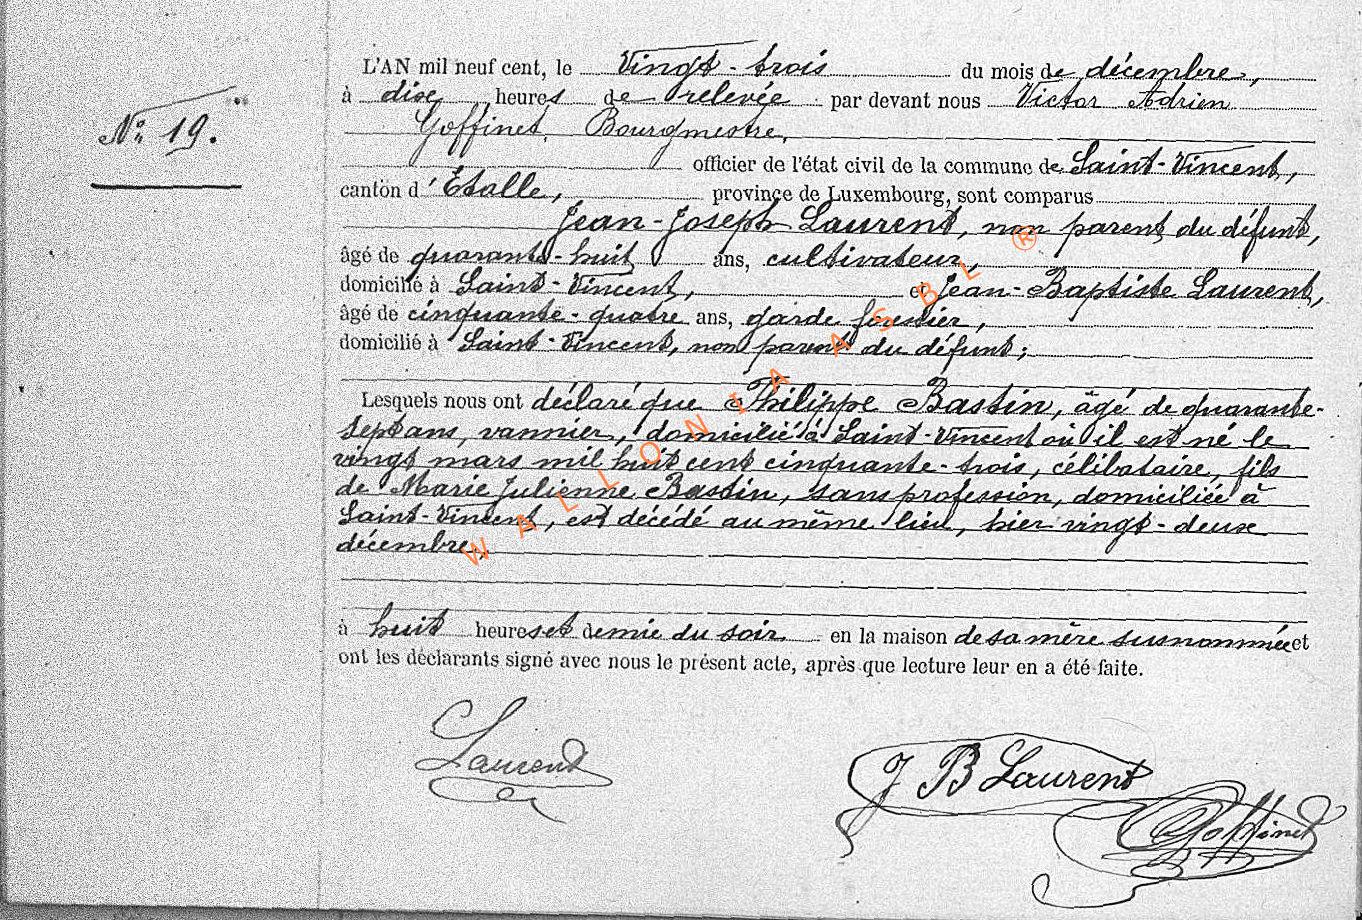 L'AN mil neuf cent, le Vingt-trois du mois de décembre,
à dix heures de relevée par devant nous Victor Adrien
Goffinet, Bourgmestre,
No: 19.
officier de l'état civil de la commune de Saint-Vincent,
canton d'Étalle, province de Luxembourg, sont comparus
Jean-Joseph Laurent, non parent du défunt,
âgé de quarante-huit ans, cultivateur,
domicilié à Saint-Vincent, et Jean-Baptiste Laurent,
âgé de cinquante-quatre ans, garde forestier,
domicilié à Saint-Vincent, non parent du défunt;
Lesquels nous ont déclaré que Philippe Bastin, âgé de quarante-
sept ans, vannier, domicilié à Saint-Vincent où il est né le
vingt mars mil huit cent cinquante-trois, célibataire, fils
de Marie Julienne Bastin, sans profession, domiciliée à
Saint-Vincent, est décédé au même lieu, hier vingt-deux
décembre,
à huit heures et demie du soir en la maison de sa mère susnommée et
ont les déclarants signé avec nous le présent acte, après que lecture leur en a été faite.
Laurent
J B Laurent
Goffinet
WALLONIA ASBL ®